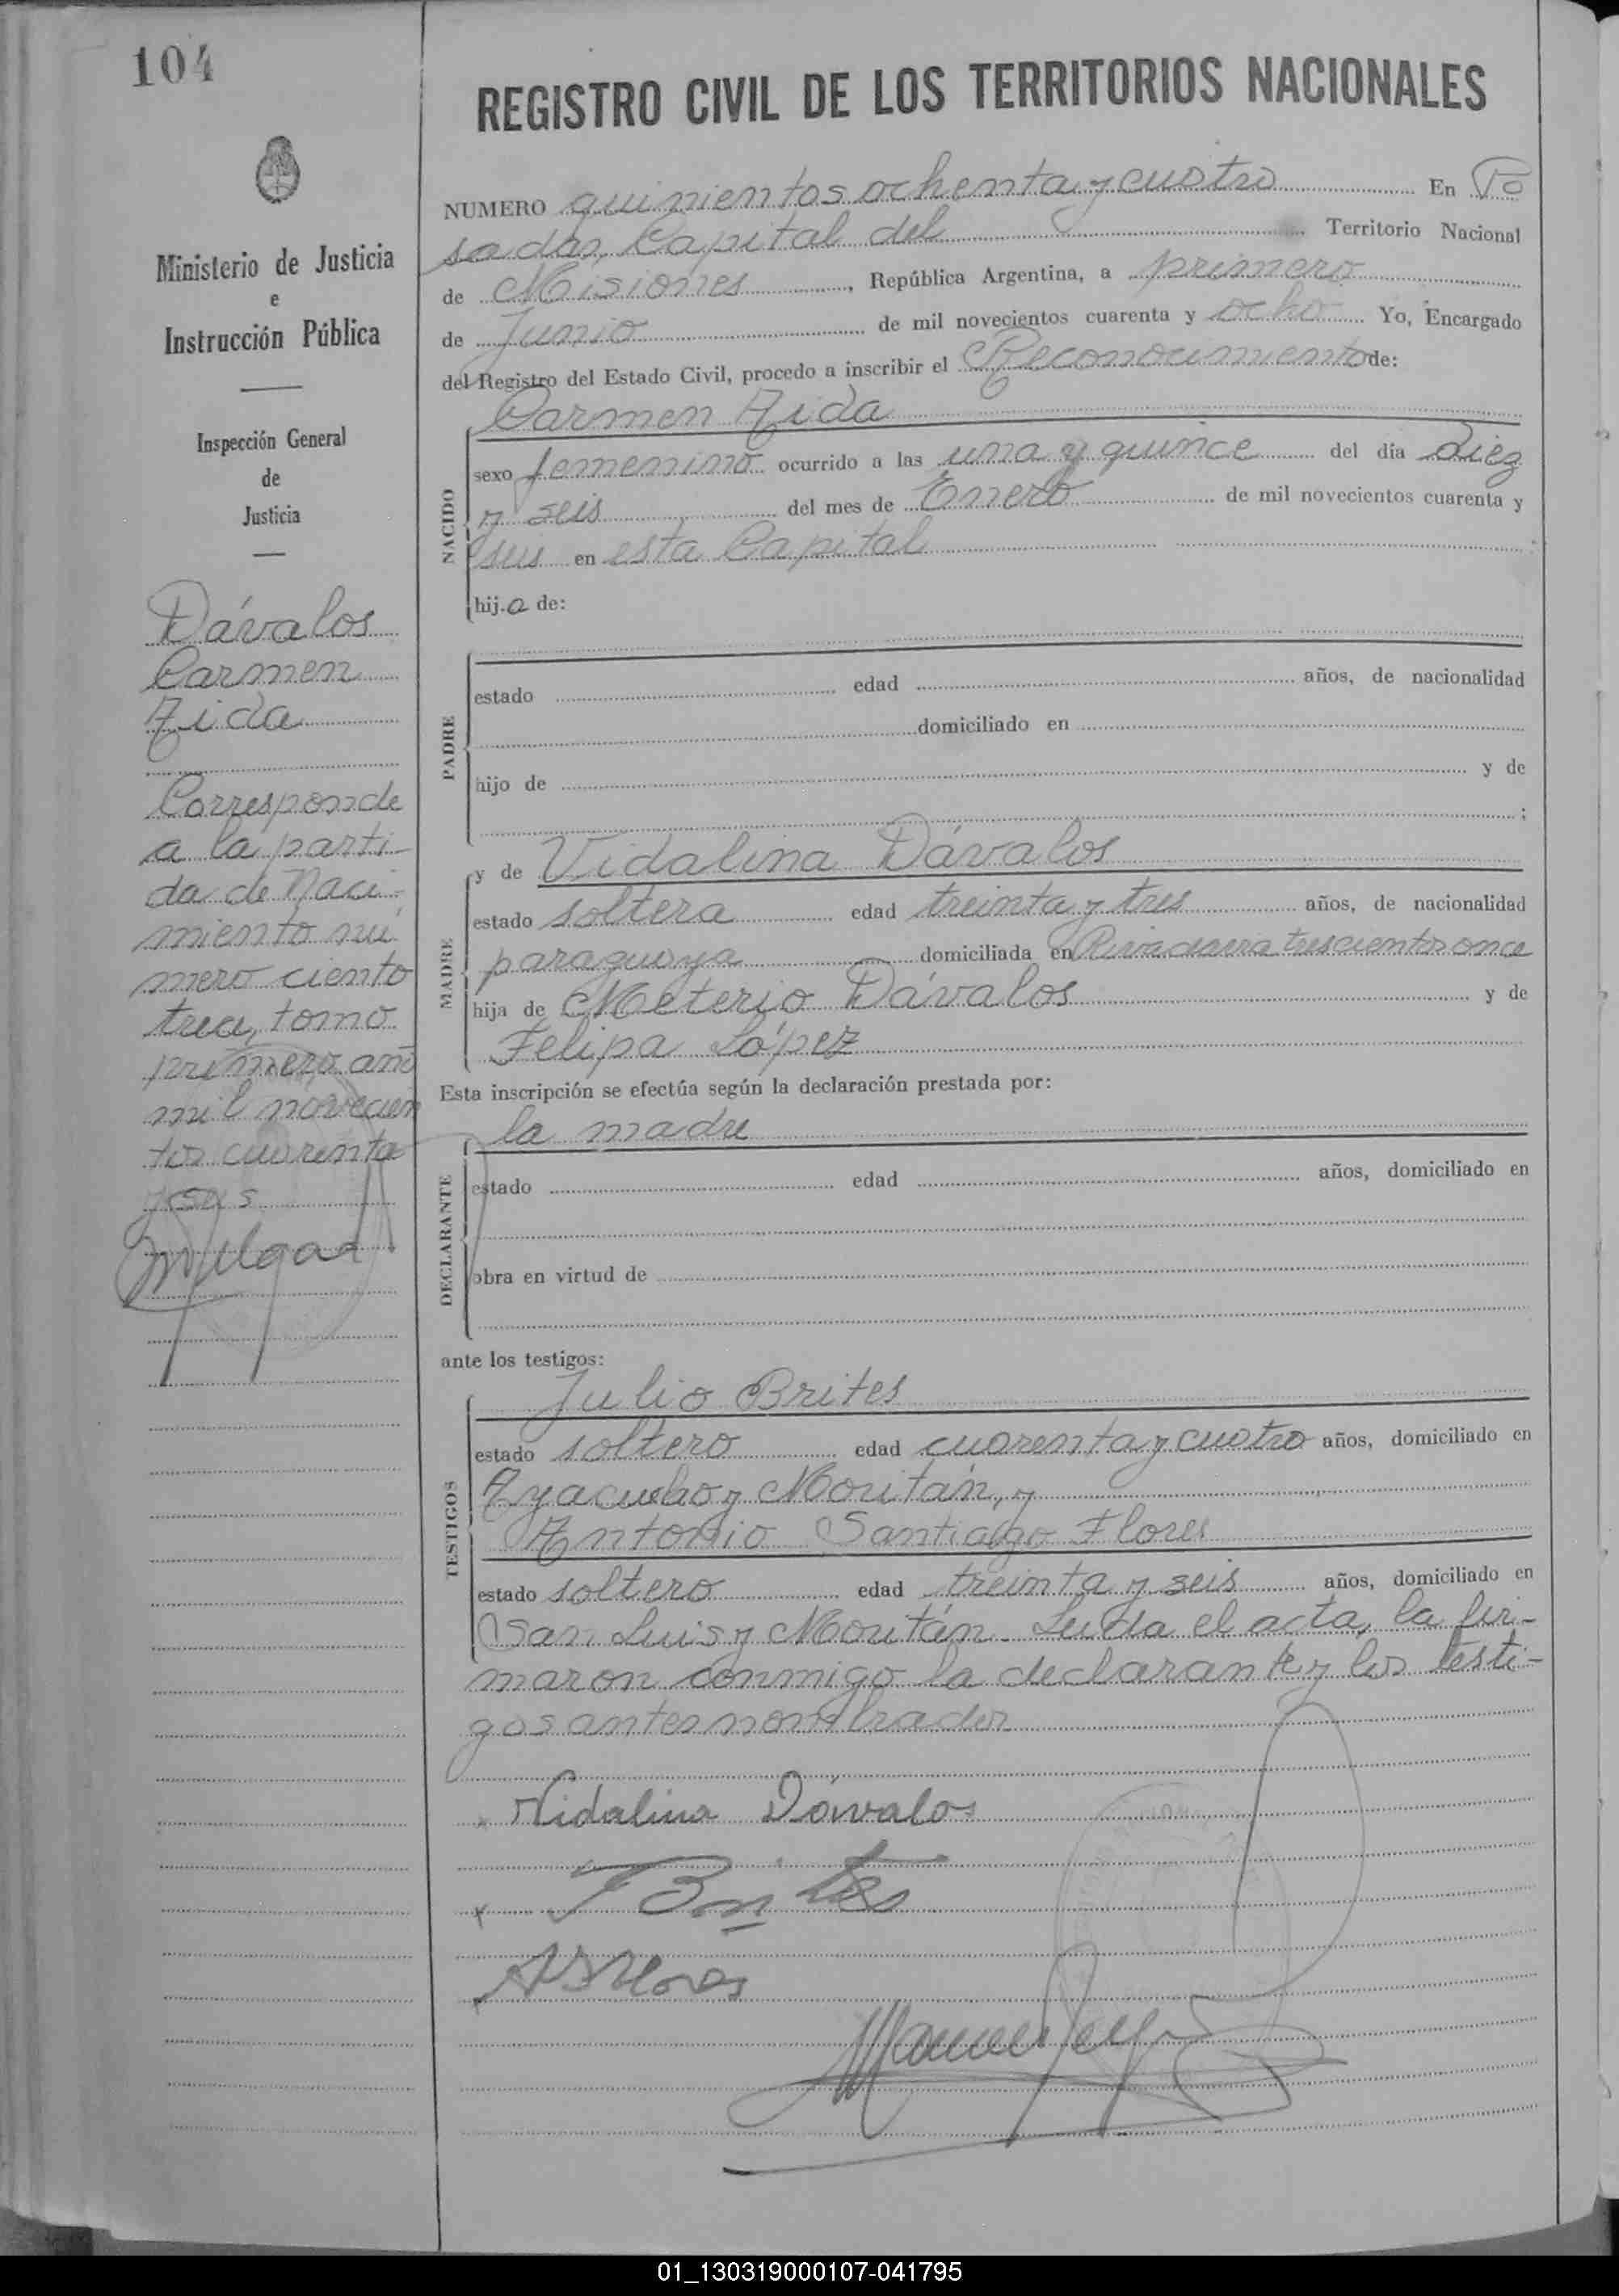 104
Ministerio de Justicia
e
Instrucción Pública
Inspección General
de
Justicia
Dávalos
Carmen
Aida
Corresponde
a la parti-
da de Naci-
miento nú
mero ciento
trece, tomo
primero año
mil novecien
tos cuarenta
y seis
REGISTRO CIVIL DE LOS TERRITORIOS NACIONALES
NUMERO quinientos ochenta y cuatro En Po
sadas, Capital del Territorio Nacional
de Misiones, República Argentina, a primero
de Junio de mil novecientos cuarenta y ocho Yo, Encargado
del Registro del Estado Civil, procedo a inscribir el Reconocimiento de:
Carmen Aida
NACIDO
sexo femenino ocurrido a las una y quince del día diez
y seis del mes de Enero de mil novecientos cuarenta y
seis en esta Capital
hij.a de:
PADRE
estado edad años, de nacionalidad
domiciliado en
hijo de y de
;
y de Vidalina Dávalos
MADRE
estado soltera edad treinta y tres años, de nacionalidad
paraguaya domiciliada en Rivadavia trescientos once
hija de Meterio Dávalos y de
Felipa López
Esta inscripción se efectúa según la declaración prestada por:
la madre
DECLARANTE
estado edad años, domiciliado en
obra en virtud de
ante los testigos:
Julio Brites
TESTIGOS
estado soltero edad cuarenta y cuatro años, domiciliado en
Ayacucho y Moritán, y
Antonio Santiago Flores
estado soltero edad treinta y seis años, domiciliado en
San Luis y Moritán. Leída el acta, la fir-
maron conmigo la declarante y los testi-
gos antes nombrados
Vidalina Dávalos
J Brites
A S Flores
01_130319000107-041795